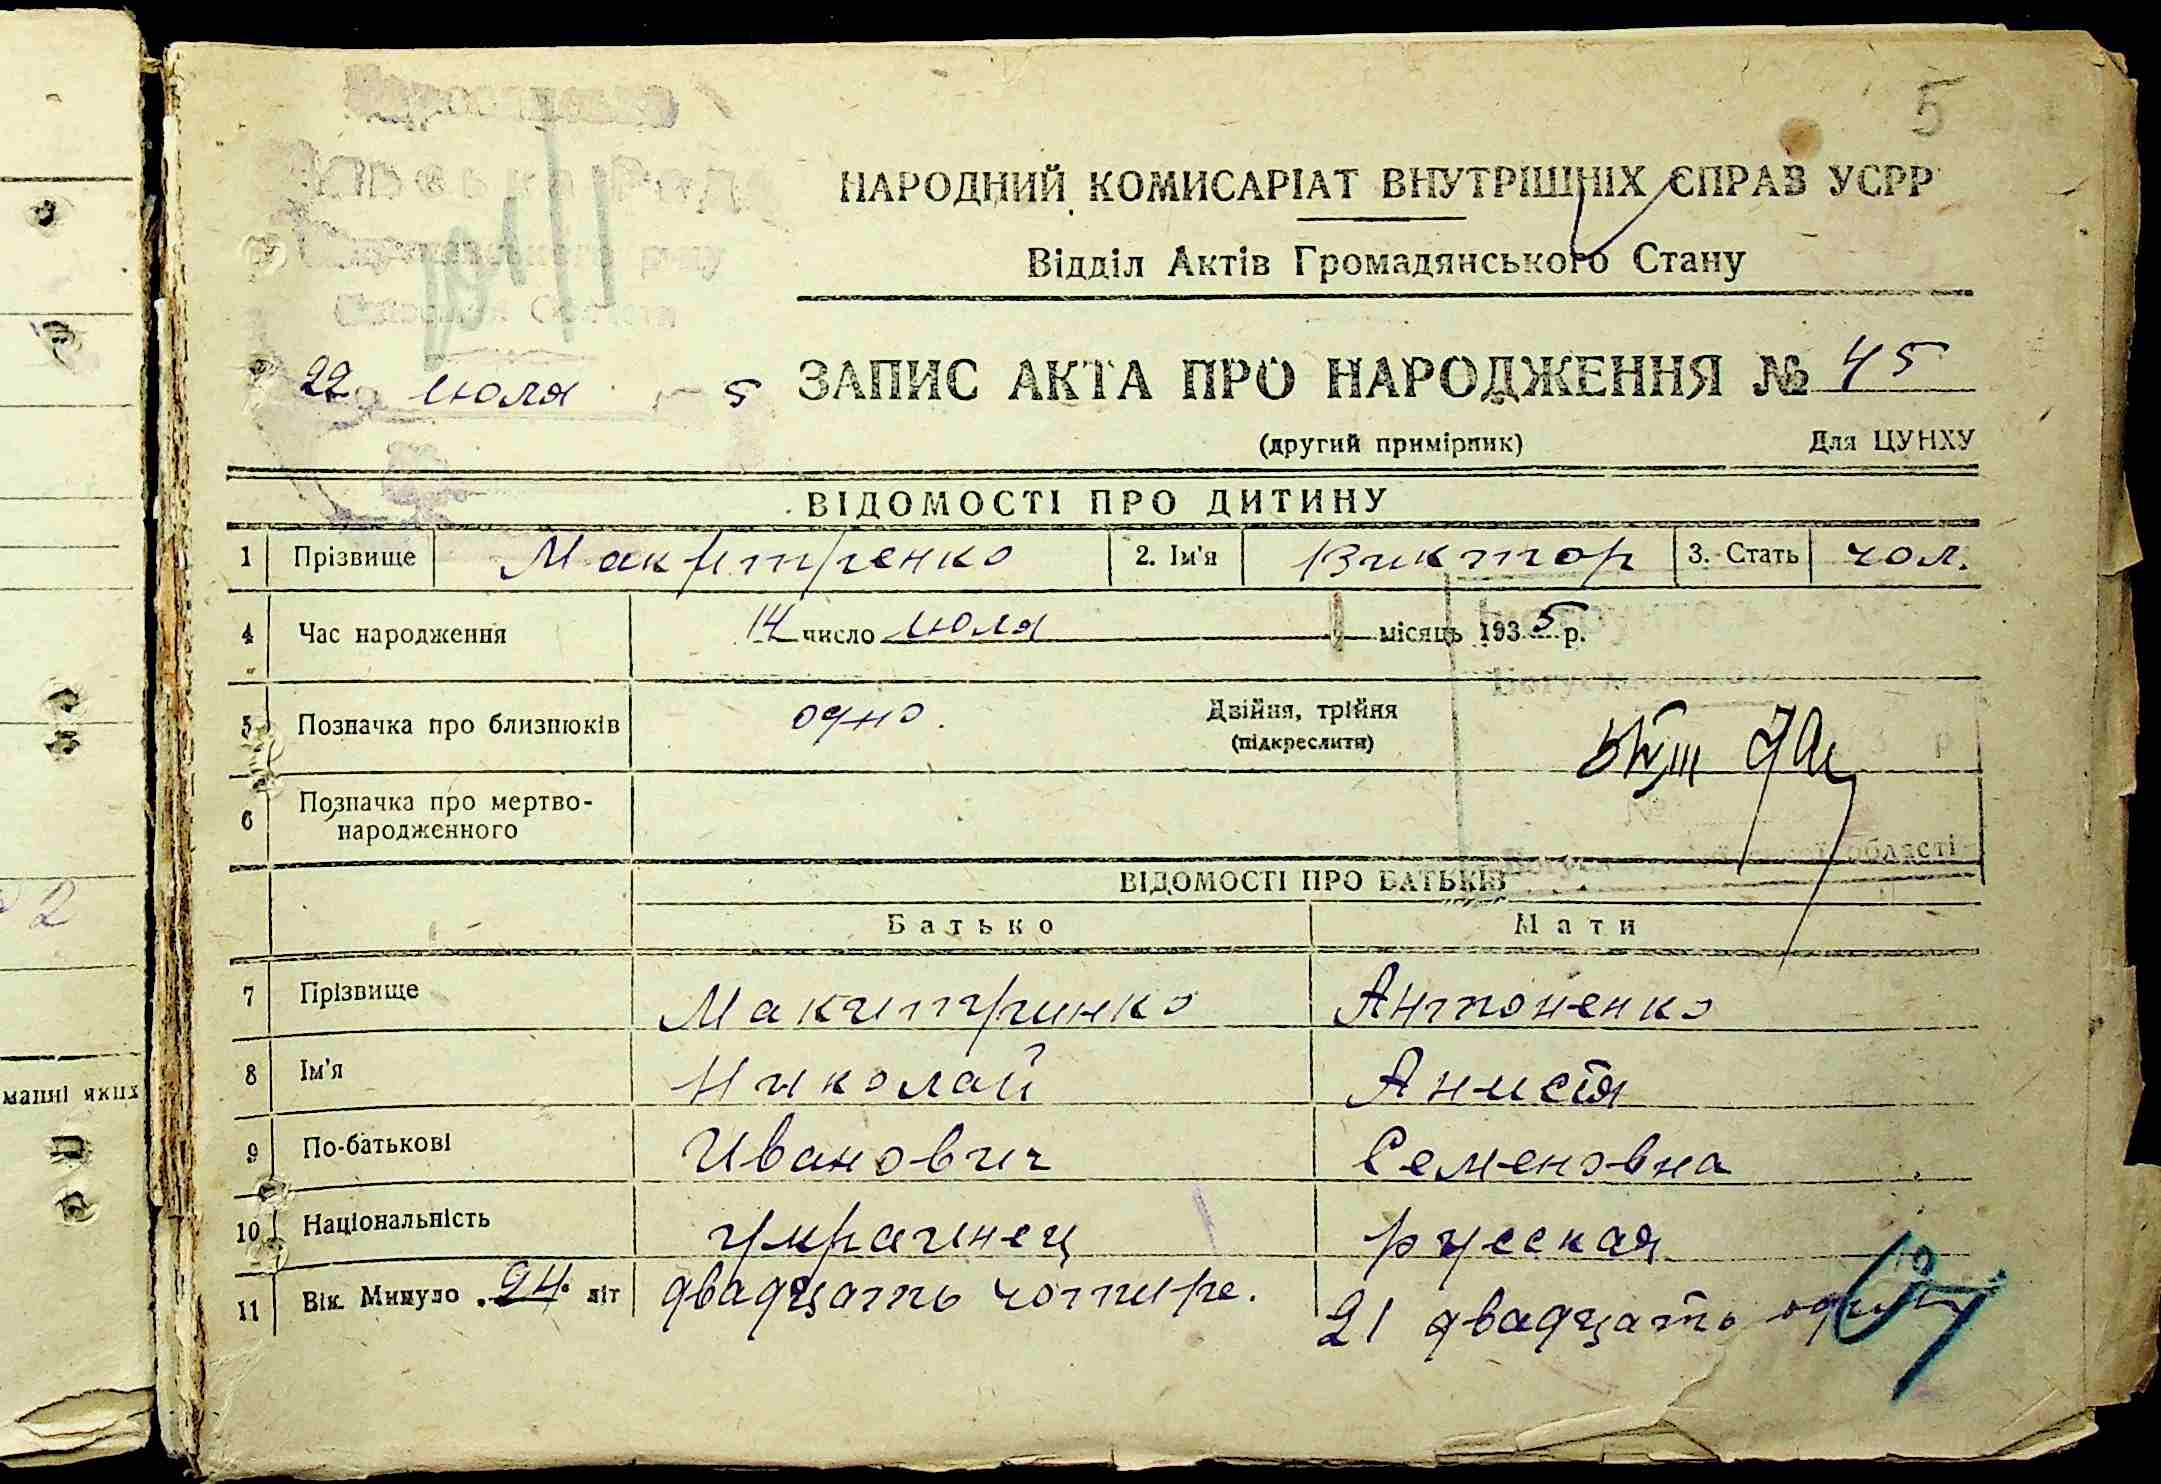 5
НАРОДНИЙ КОМИСАРІАТ ВНУТРІШНІХ СПРАВ УСРР
Відділ Актів Громадянського Стану
22 июля 5
ЗАПИС АКТА ПРО НАРОДЖЕННЯ № 45
(другий примірник) Для ЦУНХУ
ВІДОМОСТІ ПРО ДИТИНУ
1 Прізвище Макитренко 2. Ім'я Виктор 3. Стать чол.
4 Час народження 14 число июля місяць 1935 р.
5 Позначка про близнюків одно. Двійня, трійня
(підкреслити)
6 Позначка про мертво-
народженного
області
ВІДОМОСТІ ПРО БАТЬКІВ
Батько Мати
7 Прізвище Макитринко Антоненко
8 Ім'я Николай Анисія
9 По-батькові Иванович Семеновна
10 Національність украинец русская
11 Вік. Минуло 24 літ двадцать чотире. 21 двадцать один
2
манні яких